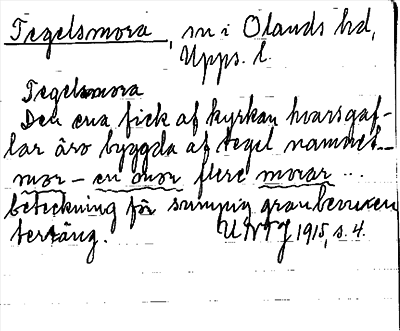 Tegelsmora, sn i Olands hd,
Upps. l.
Tegelsmora
Den ena fick af kyrkan hvars gaf-
lar äro byggda af tegel namnet
mor - en mor flere morar ...
beteckning för sumpig granbevuxen
terräng. 1915, s. 4.